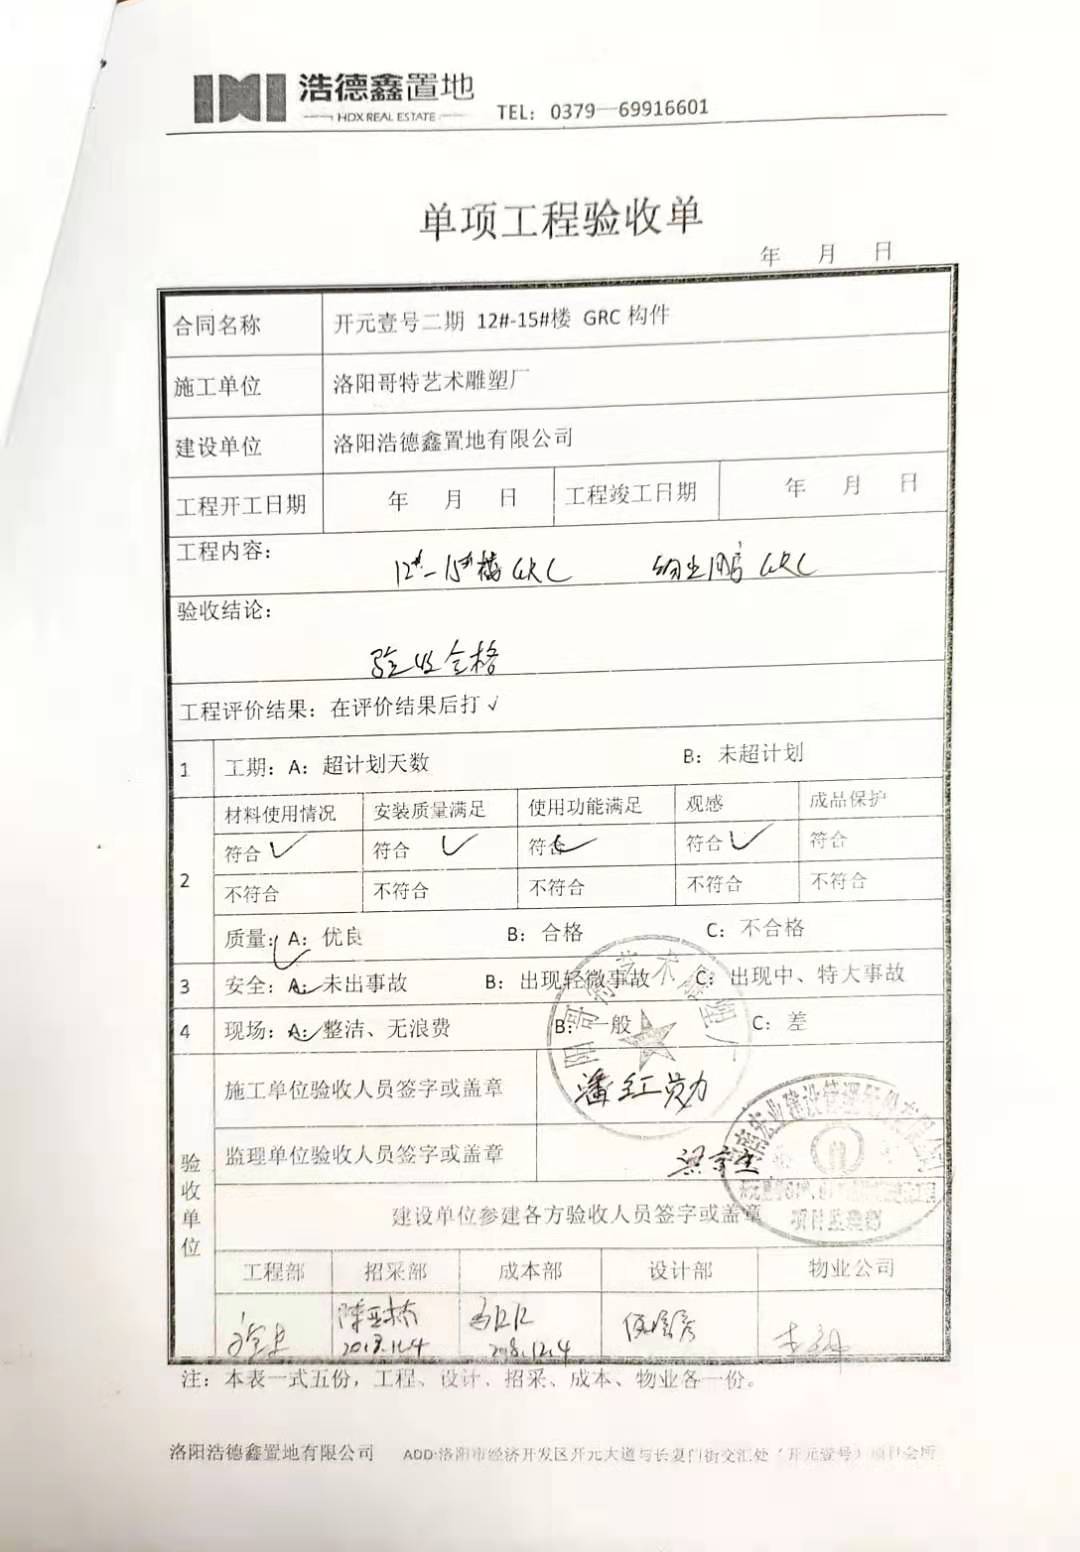 浩德鑫置地
HDX REAL ESTATE
TEL：0379—69916601
单项工程验收单
年 月 日
合同名称 开元壹号二期 12#-15#楼 GRC 构件
施工单位 洛阳哥特艺术雕塑厂
建设单位 洛阳浩德鑫置地有限公司
工程开工日期 年 月 日 工程竣工日期 年 月 日
工程内容：
12#-15#楼 GRC GRC
验收结论：
验收合格
工程评价结果：在评价结果后打√
1 工期：A：超计划天数 B：未超计划
材料使用情况 安装质量满足 使用功能满足 观感 成品保护
符合 符合 符合 符合 符合
2
不符合 不符合 不符合 不符合 不符合
质量：A：优良 B：合格 C：不合格
3 安全：A：未出事故 B：出现轻微事故 C：出现中、特大事故
4 现场：A：整洁、无浪费 B：一般 C：差
验收单位
施工单位验收人员签字或盖章
监理单位验收人员签字或盖章
建设单位参建各方验收人员签字或盖章
工程部 招采部 成本部 设计部 物业公司
2018.12.4
注：本表一式五份，工程、设计、招采、成本、物业各一份。
洛阳浩德鑫置地有限公司 ADD:洛阳市经济开发区开元大道与长夏门街交汇处（开元壹号）项目会所